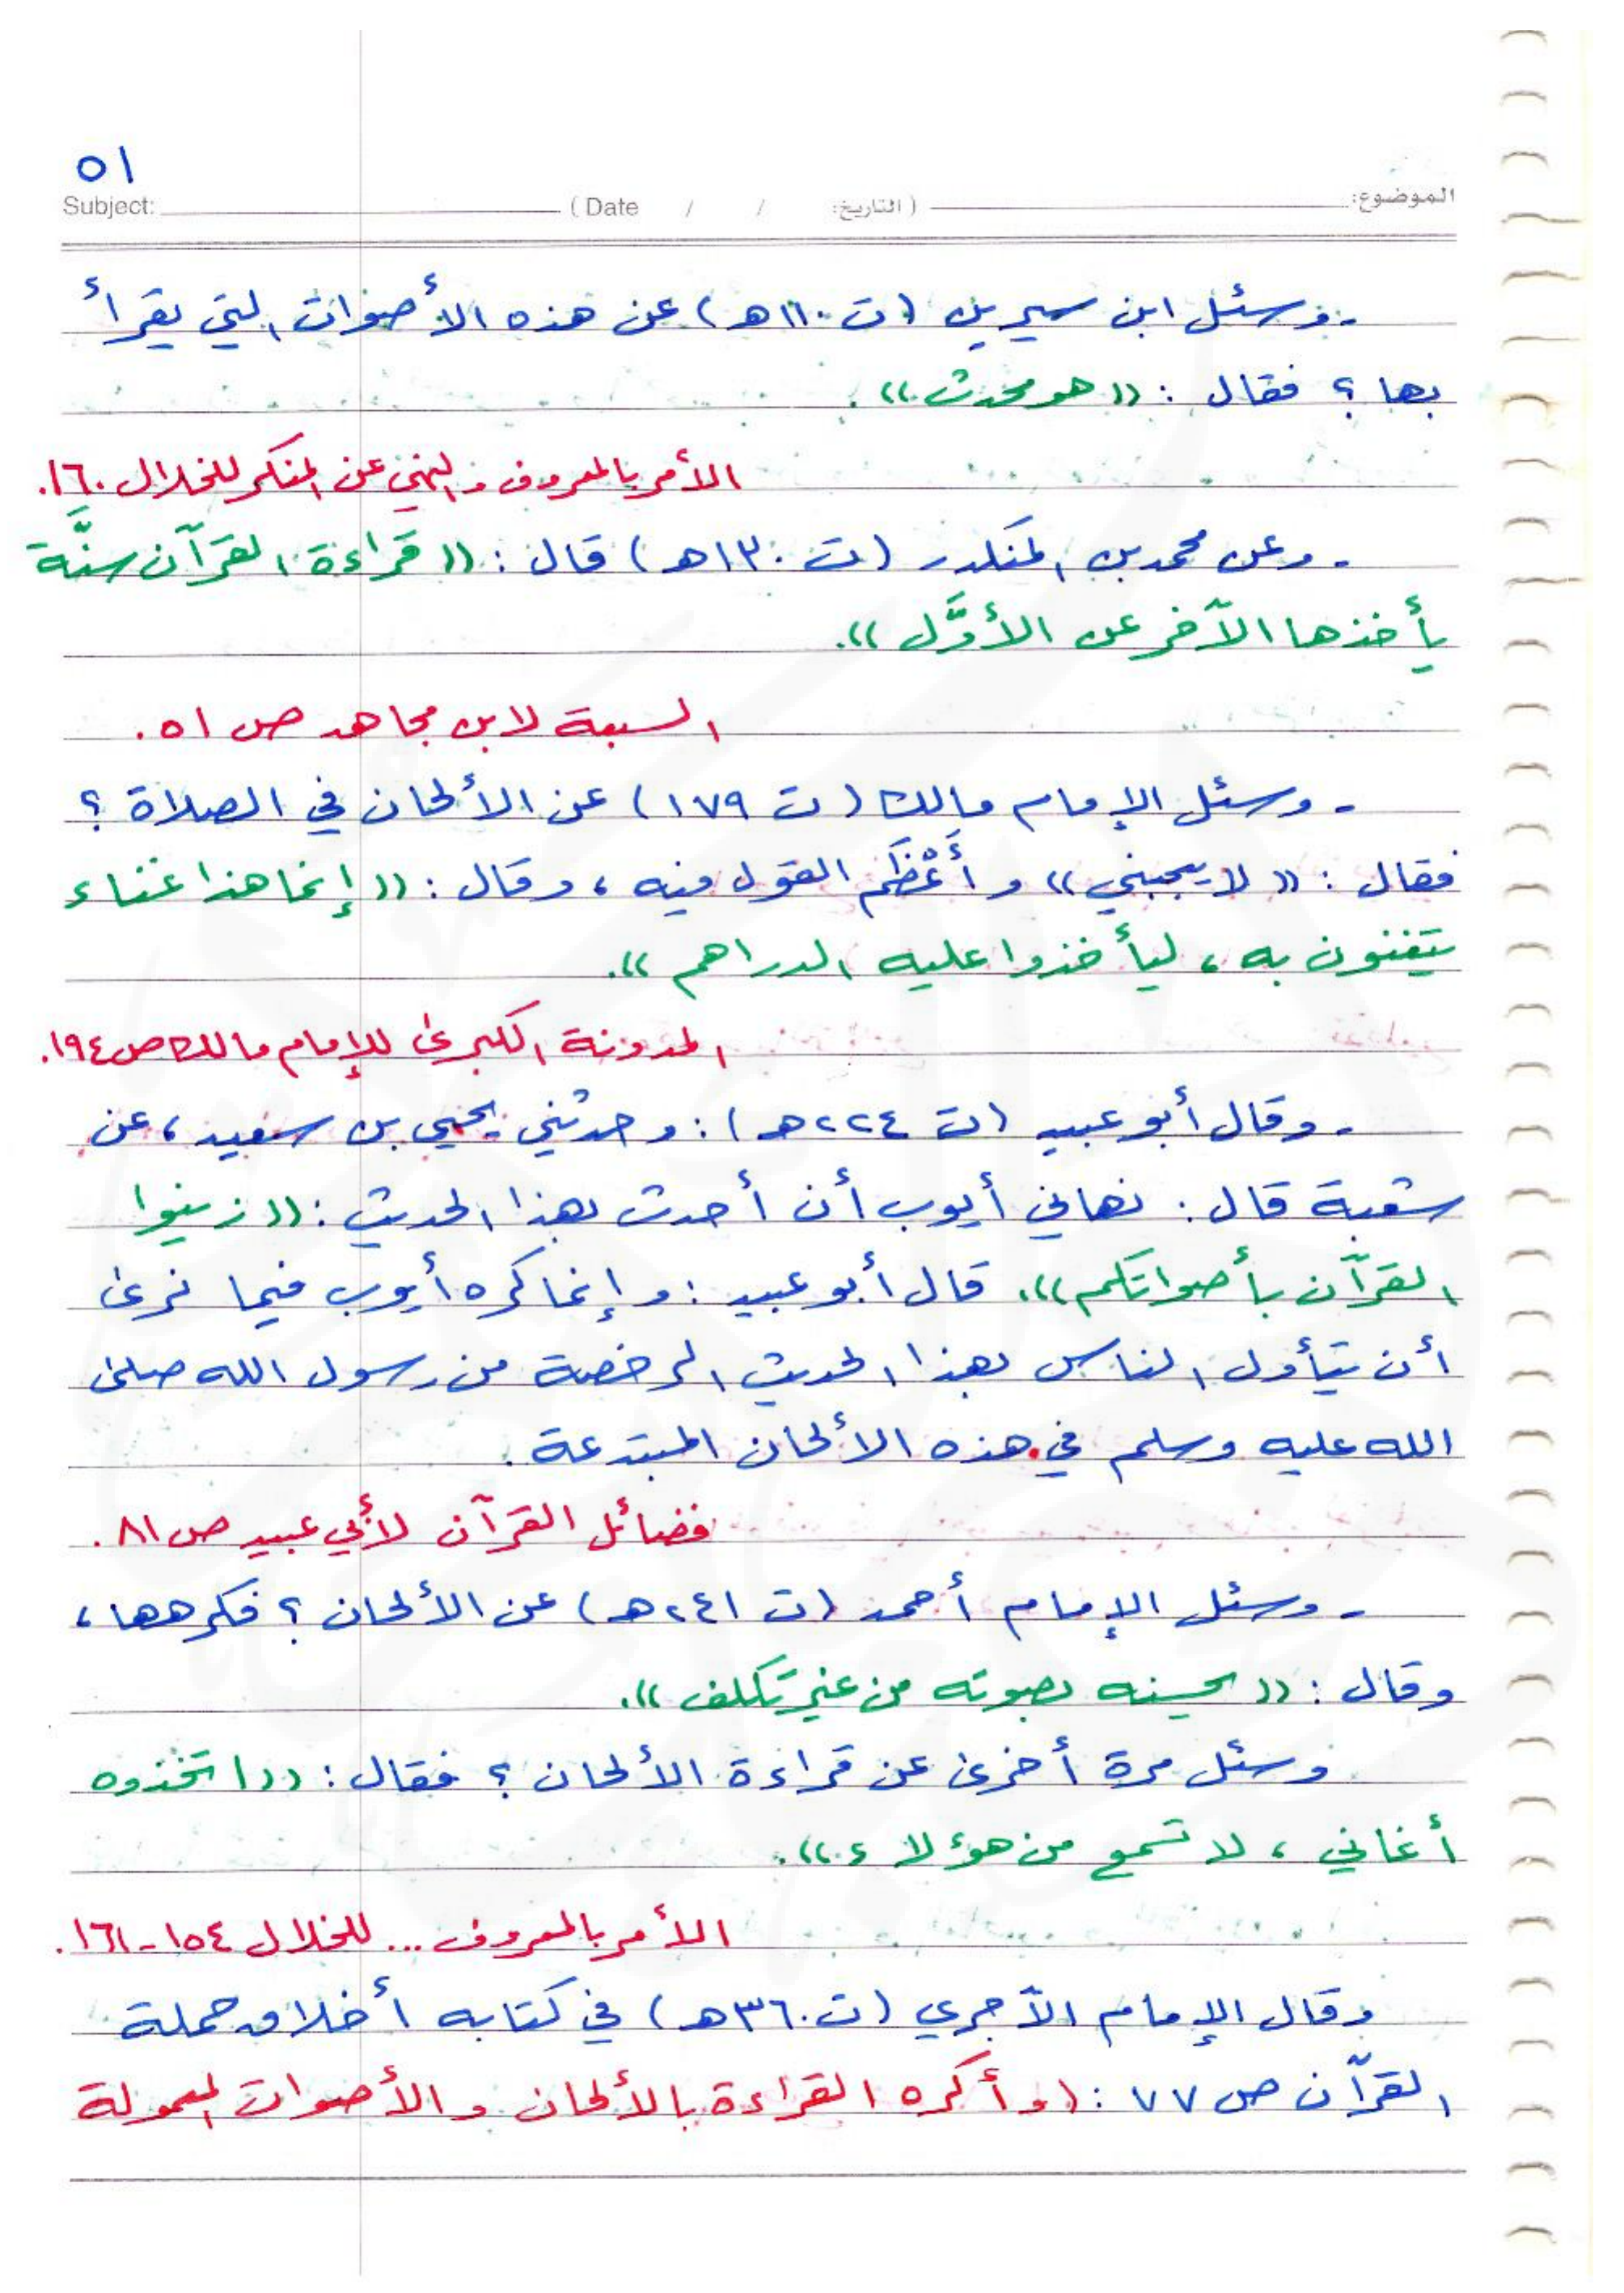 ٥١
الموضوع: (التاريخ: / / Date ) Subject:
- وسئل ابن سيرين (ت ١١٠هـ) عن هذه الأصوات التي يقرأ
بها ؟ فقال : (( هو محدث )) .
الأمر بالمعروف والنهي عن المنكر للخلال ١٦٠.
- وعن محمد بن المنكدر (ت ١٣٠هـ) قال : (( قراءة القرآن سنَّة
يأخذها الآخر عن الأوَّل )).
السبعة لابن مجاهد ص ٥١ .
- وسئل الإمام مالك (ت ١٧٩) عن الألحان في الصلاة ؟
فقال : (( لا يعجبني )) وأَعْظَم القول فيه ، وقال : (( إنما هذا غناء
يتغنون به ، ليأخذوا عليه الدراهم )).
المدونة الكبرى للإمام مالك ص ١٩٤.
- وقال أبو عبيد (ت ٢٢٤هـ) : وحدثني يحيى بن سعيد ، عن
شعبة قال : نهاني أيوب أن أحدث بهذا الحديث : (( زينوا
القرآن بأصواتكم )). قال أبو عبيد : وإنما كره أيوب فيما نرى
أن يتأول الناس بهذا الحديث الرخصة من رسول الله صلى
الله عليه وسلم في هذه الألحان المبتدعة .
فضائل القرآن لأبي عبيد ص ٨١ .
- وسئل الإمام أحمد (ت ٢٤١هـ) عن الألحان ؟ فكرهها ،
وقال : (( يحسنه بصوته من غير تكلف )).
وسئل مرة أخرى عن قراءة الألحان ؟ فقال : (( اتخذوه
أغاني ، لا تسمع من هؤلاء )).
الأمر بالمعروف ... للخلال ١٥٤ - ١٦١ .
وقال الإمام الآجري (ت ٣٦٠هـ) في كتابه أخلاق حملة
القرآن ص ٧٧ : (وأكره القراءة بالألحان والأصوات المعمولة